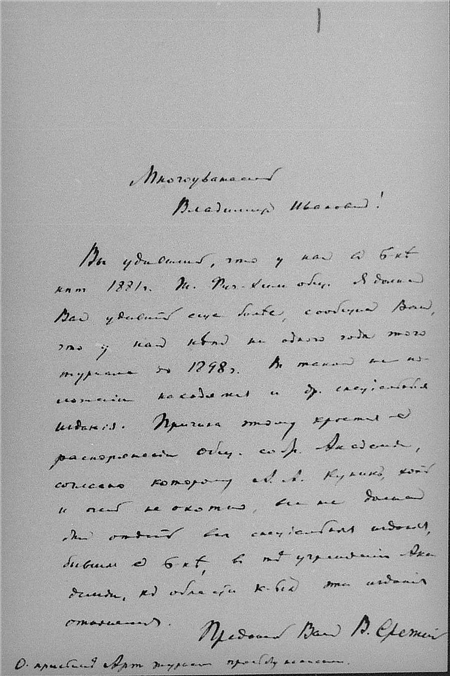 Многоуважаемый
Владимир Иванович!
Вы удивились, что у нас въ б-кѣ
нѣтъ 1881г. Ж. Физ-Хим общ. Я долженъ
Васъ удивить еще болѣе, сообщивъ Вамъ,
что у насъ нѣтъ ни одного года этого
журнала до 1898г. Въ такомъ же по-
ложеніи находятся и др. спеціальныя
изданія. Причина этому кроется въ
распоряженіи Общ. собр. Академіи,
согласно которому А. А. Куникъ, хотя
и очень не охотно, все же долженъ
былъ отдать всѣ спеціальныя изданія,
бывшія въ б-кѣ, въ тѣ учрежденія Ака-
деміи, къ области к-хъ эти изданія
относятся.
Преданный Вамъ В. Срезнев
О журнала просьбу